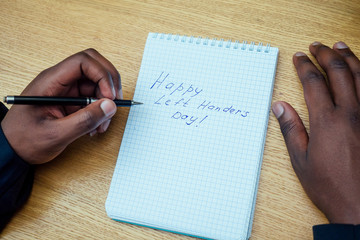 Happy
Left Handers
Day!